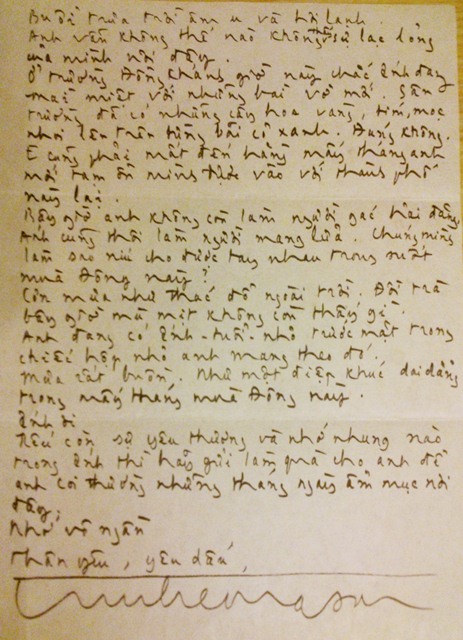 Buổi trưa trời âm u và hơi lạnh.
Anh vẫn không thế nào không thấy sự lạc lõng
của mình nơi đây.
Ở trường Đồng Khánh giờ này chắc Ánh đang
mải miết với những bài vở mới. Sân
trường đã có những cây hoa vàng, tím, mọc
nhoi lên trên từng bãi cỏ xanh. Đúng không.
E cũng phải mất đến hàng mấy tháng anh
mới tạm ổn mình được vào với thành phố
này lại.
Bây giờ anh không còn làm người gác hải đăng.
Anh cũng thôi làm người mang lửa. Chúng mình
làm sao níu cho được tay nhau trong suốt
mùa Đông này?
Còn mưa như thác đổ ngoài trời. Đồi trà
bây giờ mù mịt không còn thấy gì.
Anh đang có Ánh-tuổi-nhỏ trước mặt trong
chiếc hộp nhỏ anh mang theo đó.
Mưa rất buồn. Như một điệp khúc dai dẳng
trong mấy tháng mùa Đông này.
Ánh ơi
Nếu còn sự yêu thương và nhớ nhung nào
trong Ánh thì hãy gửi làm quà cho anh để
anh coi thường những tháng ngày ẩm mục nơi
đây;
Nhớ vô ngần
Thân yêu, yêu dấu,
Trinhcongson